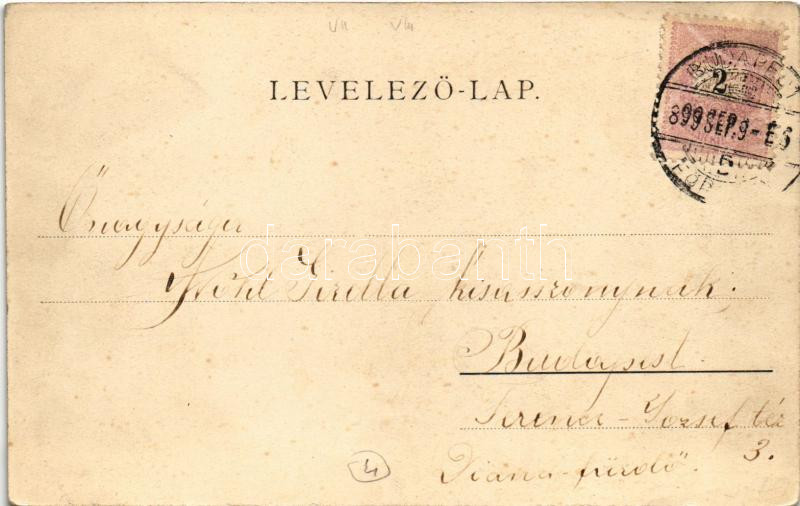 LEVELEZŐ-LAP.
BUDAPEST
2
899 SEP. 9 - E6
FŐP
Őnagysága
Wohl Gizella kisasszonynak.
Budapest.
Ferencz-József tér
3.
Diana-fürdő.
4
darabanth